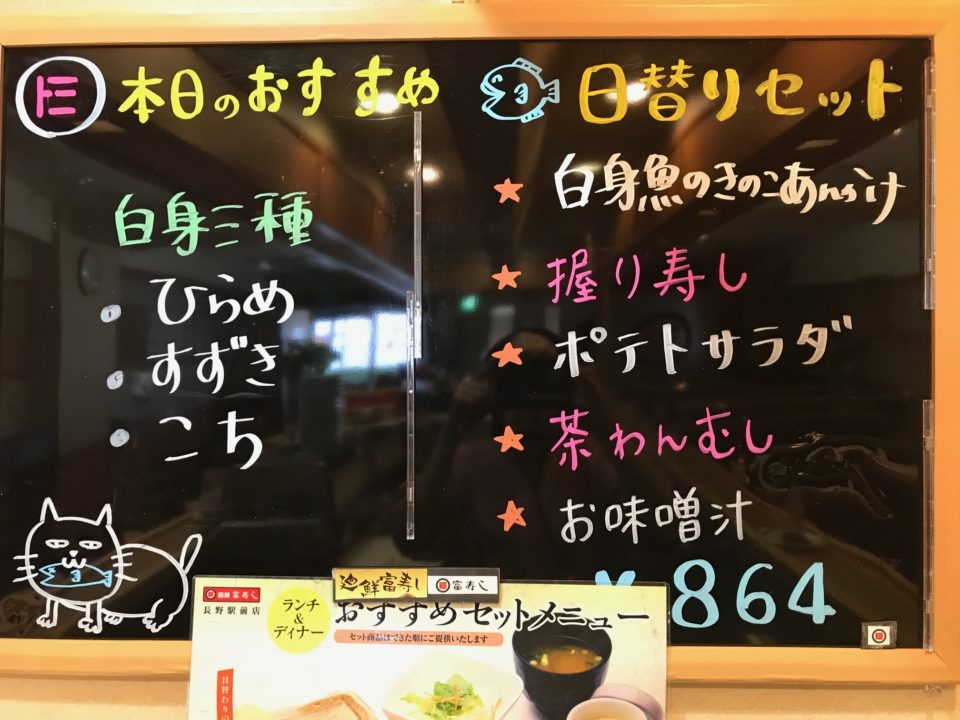 本日のおすすめ
白身三種
・ひらめ
・すずき
・こち
日替りセット
★白身魚のきのこあんかけ
★握り寿し
★ポテトサラダ
★茶わんむし
★お味噌汁
¥864
廻鮮富寿し
富寿し
富寿し
長野駅前店
ランチ
&
ディナー
おすすめセットメニュー
セット商品はできた順にご提供いたします
日替わりの